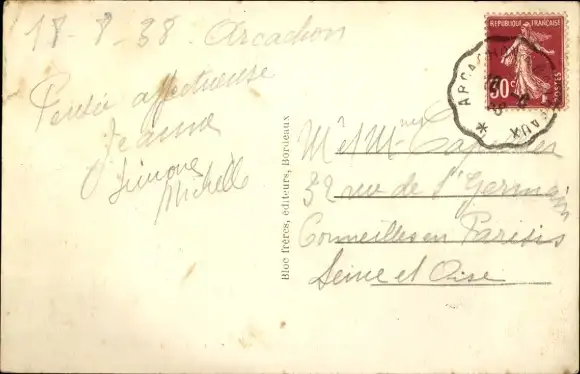 18-8-38 Arcachon
Pensée affectueuse
Jeanne
Simone
Michelle
Bloc frères, éditeurs, Bordeaux
REPUBLIQUE FRANÇAISE
30c
POSTES
ARCACHON
AUX
Mr et Mme
32 rue de St Germain
Cormeilles en Parisis
Seine et Oise